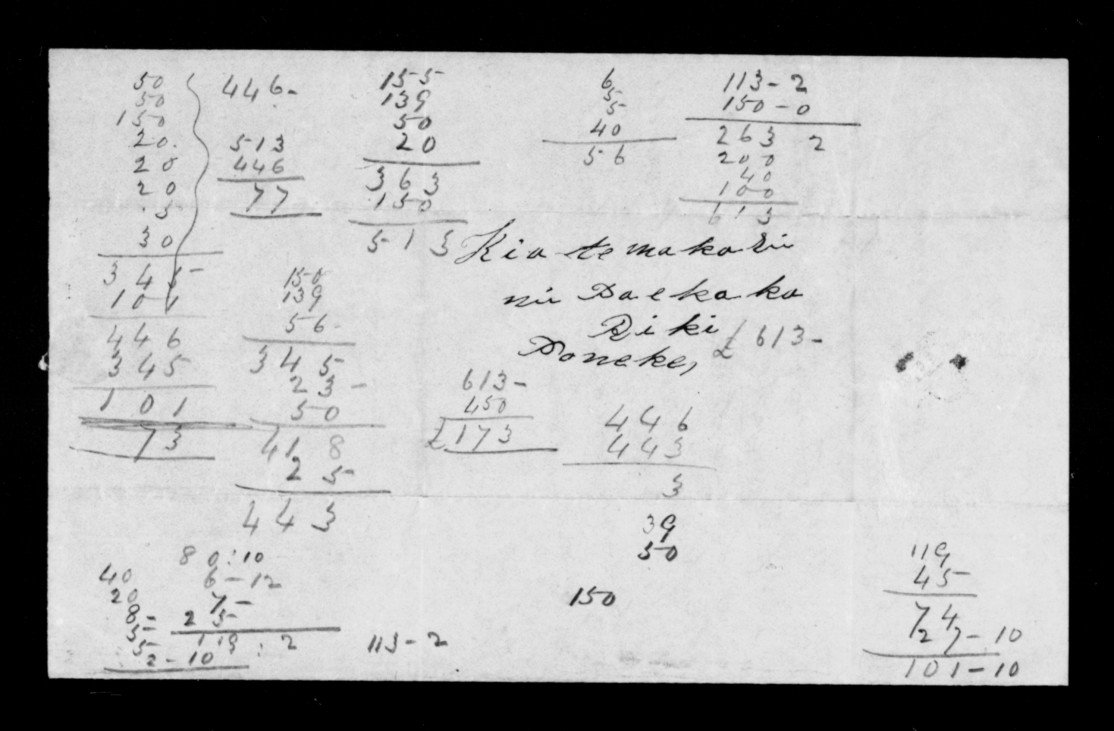 50
50
150
20.
20
20
5
30
345
101
446
345
101
73
446-
513
446
77
155
139
50
20
363
150
513
6
5
5
40
56
113-2
150-0
263 2
200
40
100
613
Kia te makarini
Riki
Poneke,
£613-
150
139
56-
345
23-
50
418
25
443
613-
450
£173
446
443
3
39
50
150
80:10
6-12
7-
25-
119:2
40
20
8-
5-
5
2-10
113-2
119
45
74
27-10
101-10